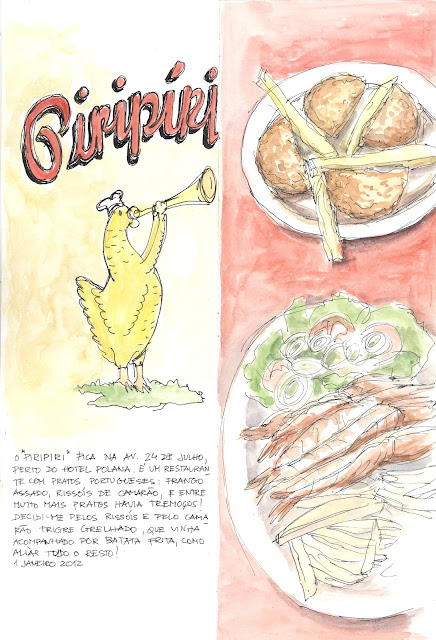 Piripíri
O "PIRIPIRI" FICA NA AV. 24 DE JULHO,
PERTO DO HOTEL POLANA. É UM RESTAURAN
TE COM PRATOS PORTUGUESES: FRANGO
ASSADO, RISSÓIS DE CAMARÃO, E ENTRE
MUITO MAIS PRATOS HAVIA TREMOÇOS!
DECIDI-ME PELOS RISSÓIS E PELO CAMA
RÃO TRIGRE GRELHADO, QUE VINHA
ACOMPANHADO POR BATATA FRITA, COMO
ALIÁR TODO O RESTO!
1 JANEIRO 2012